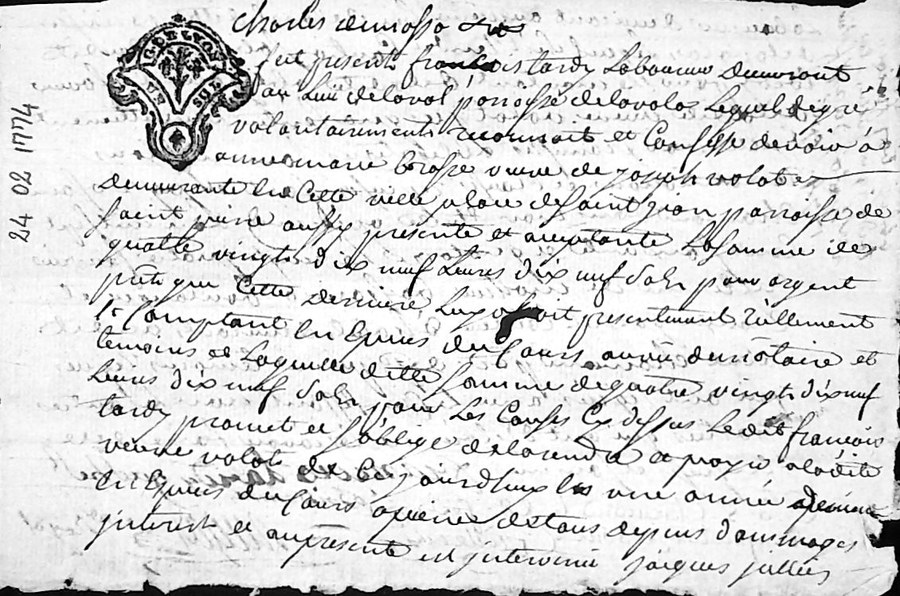 Charles
G. DE LYON
UN SOL
fut present françois tardy Laboureur demeurant
au lieu de laval parroisse de lavalas Lequel de gré
volontairement reconnoit et Confesse devoir à
anne marie brosse veuve de joseph volot
24 02 1774
demeurante en Cette ville place de saint jean parroisse de
saint pierre aussy presente et acceptante La somme de
quatre vingt dix neuf Livres dix neuf sols pour argent
prêt que Cette derniere Luy a fait presentement réellement
et Comptant en Espices du Cours au vû du notaire et
temoins et Laquelle ditte somme de quatre vingt dix neuf
Livres dix neuf sols pour Les Causes Cy dessus Ledit françois
tardy promet et s'oblige de la rendre et payer a ladite
veuve volot de Ce jourdhuy en une année
en Espices du Cours a peine de tous depens dommages
interest et au present est intervenu jacques jullien